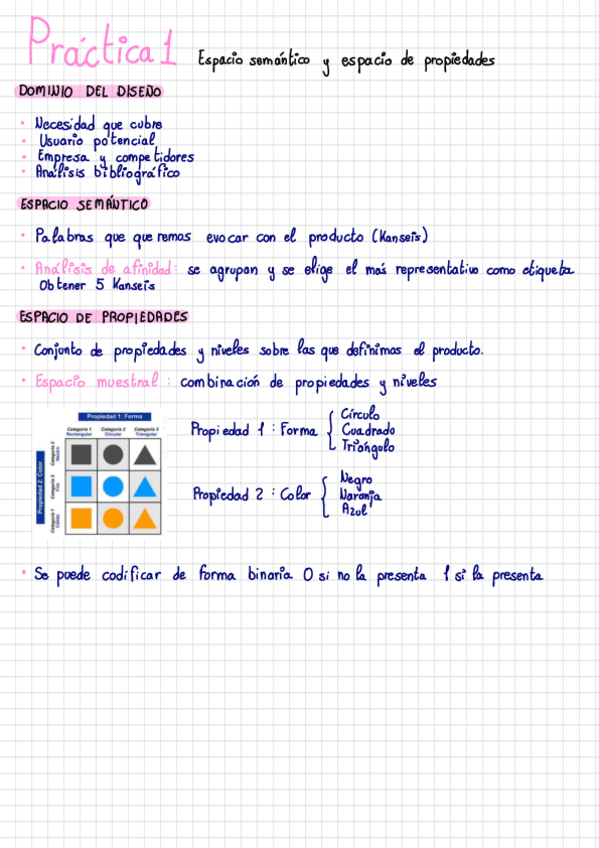 Práctica 1 Espacio semántico y espacio de propiedades
DOMINIO DEL DISEÑO
• Necesidad que cubre
• Usuario potencial
• Empresa y competidores
• Análisis bibliográfico
ESPACIO SEMÁNTICO
• Palabras que queremos evocar con el producto (Kanseis)
• Análisis de afinidad: se agrupan y se elige el más representativo como etiqueta
Obtener 5 Kanseis
ESPACIO DE PROPIEDADES
• Conjunto de propiedades y niveles sobre las que definimos el producto.
• Espacio muestral: combinación de propiedades y niveles
Propiedad 1: Forma
Categoría 1 Categoría 2 Categoría 3
Rectangular Circular Triangular
Propiedad 2: Color
Categoría 3
Neutro
Categoría 2
Frío
Categoría 1
Cálido
Propiedad 1: Forma { Círculo
Cuadrado
Triángulo
Propiedad 2: Color { Negro
Naranja
Azul
• Se puede codificar de forma binaria 0 si no la presenta 1 si la presenta